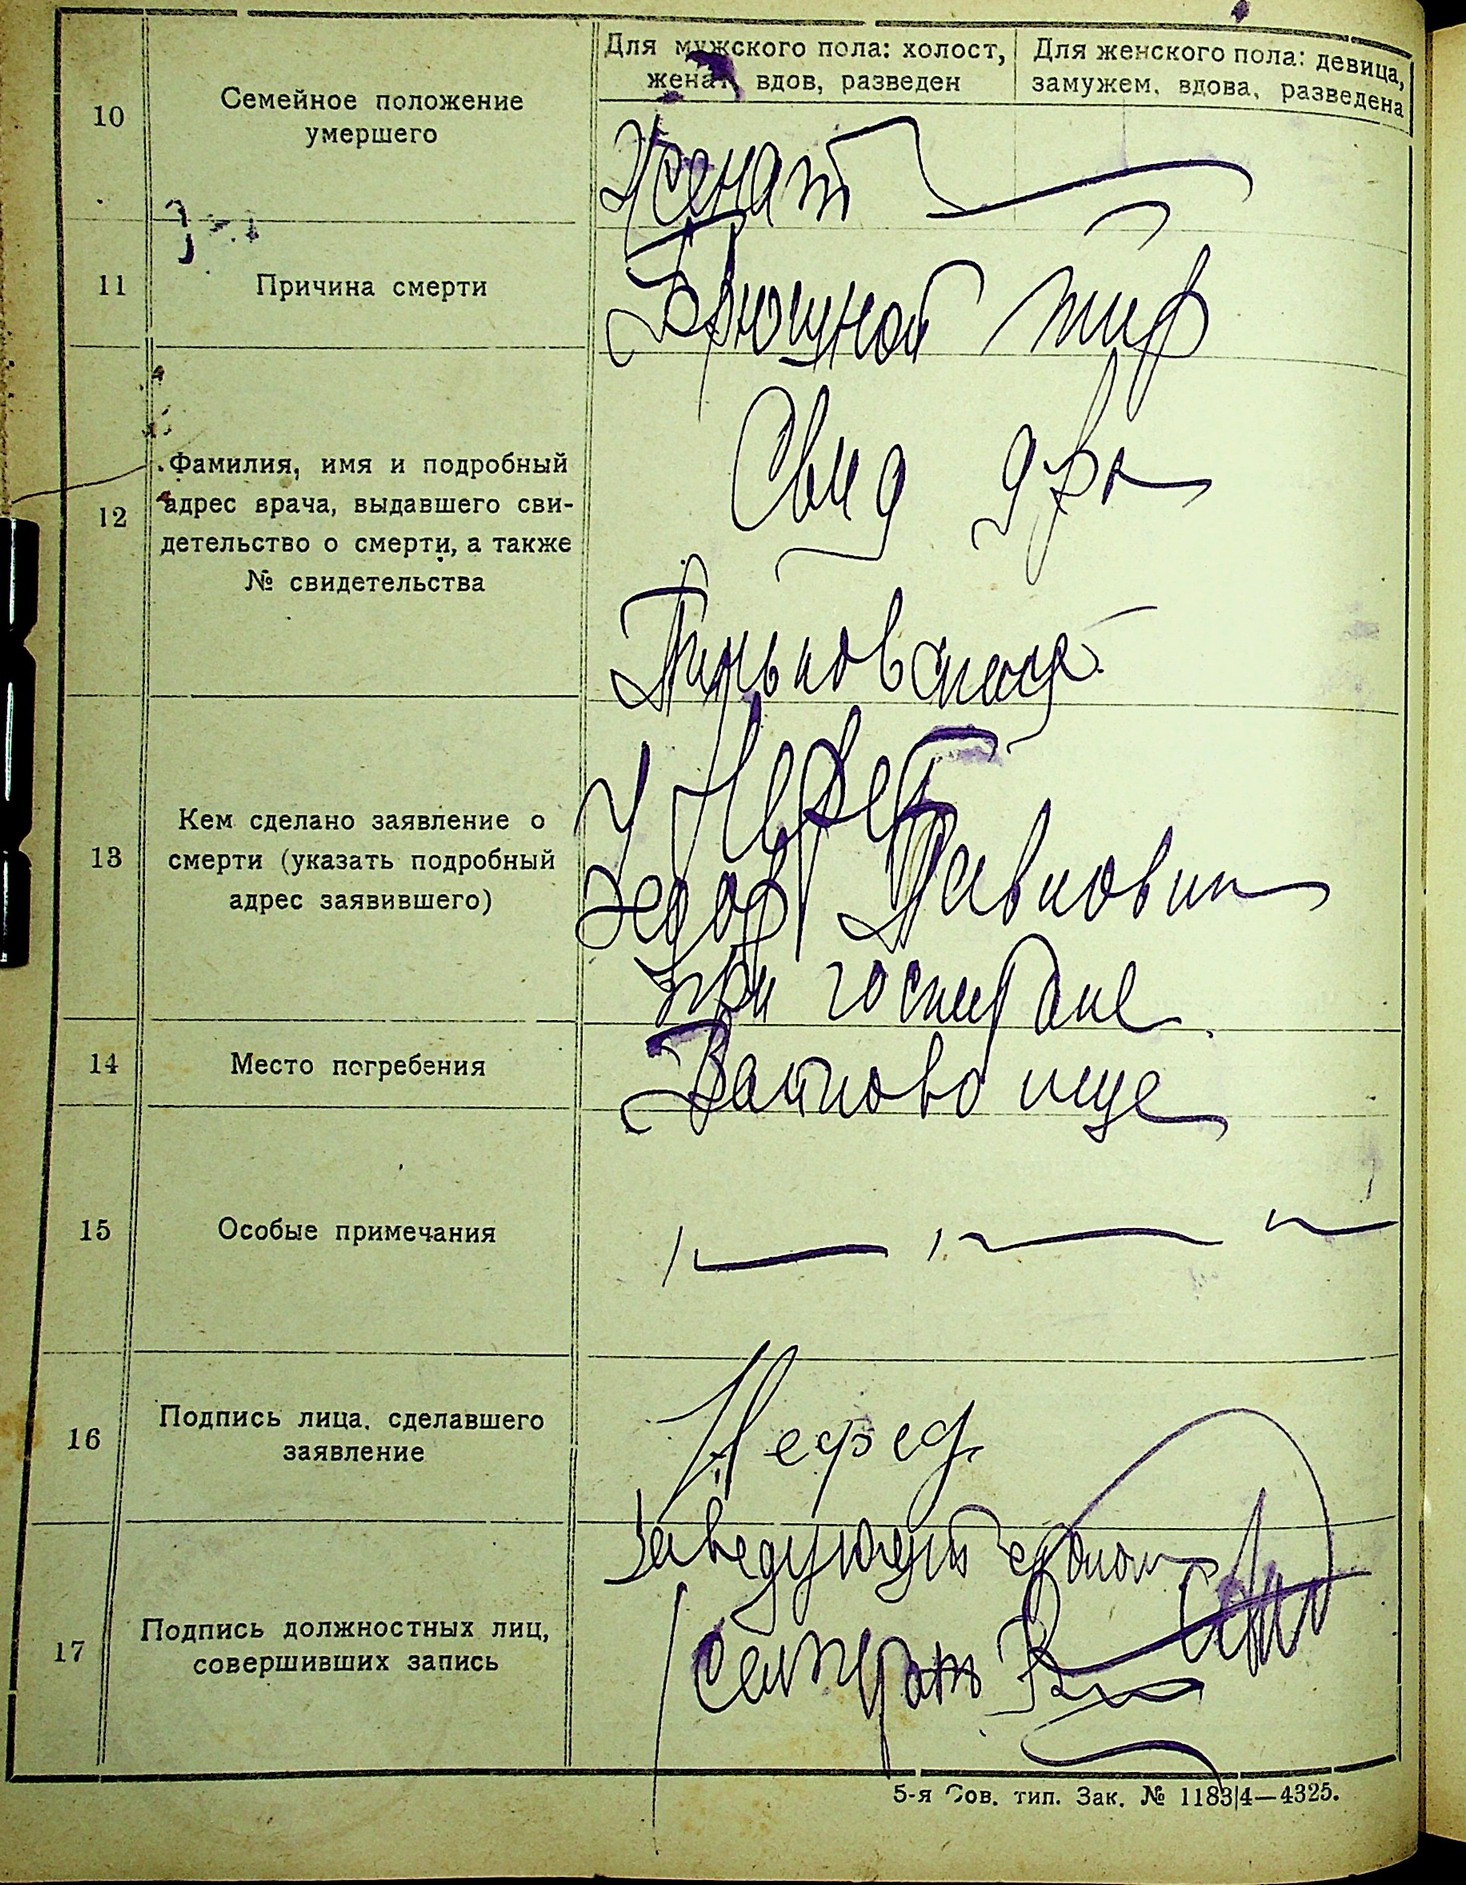 Для мужского пола: холост,
женат, вдов, разведен
Для женского пола: девица,
замужем, вдова, разведена
10
Семейное положение
умершего
Женат
11
Причина смерти
Брюшной тиф
12
Фамилия, имя и подробный
адрес врача, выдавшего сви-
детельство о смерти, а также
№ свидетельства
Свид д-ра
13
Кем сделано заявление о
смерти (указать подробный
адрес заявившего)
Федор Павлович
при госпитале
14
Место погребения
15
Особые примечания
16
Подпись лица, сделавшего
заявление
17
Подпись должностных лиц,
совершивших запись
Заведующий столом
Секретарь
5-я Сов. тип. Зак. № 1183|4—4325.